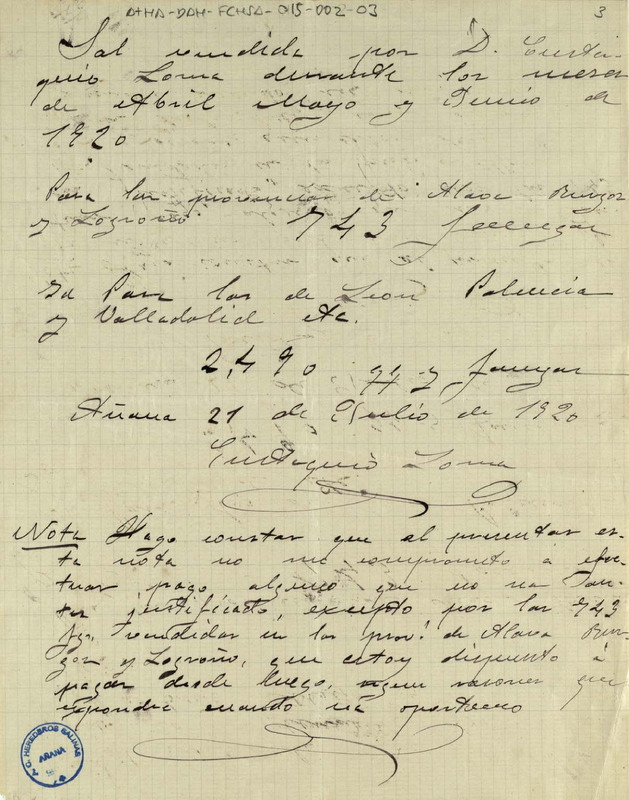 ATHA-DAH-FCHSA-015-002-03
3
Sal vendida por D. Eusta-
quio Loma durante los meses
de Abril Mayo y Junio de
1920
Para las provincias de Alava Burgos
y Logroño 743 fanegas
Id Para las de León Palencia
y Valladolid etc.
2,490 y fanegas
Añana 21 de Julio de 1920
Eustaquio Loma
Nota Hago constar que al presentar es-
ta nota no me comprometo a efec-
tuar pago alguno que no sea
justificado, excepto por las 743
fgs, vendidas en las prov. de Alava Bur-
gos y Logroño, que estoy dispuesto á
pagar desde luego, segun razones que
expondré cuando sea oportuno
HEREDEROS SALINAS
AÑANA